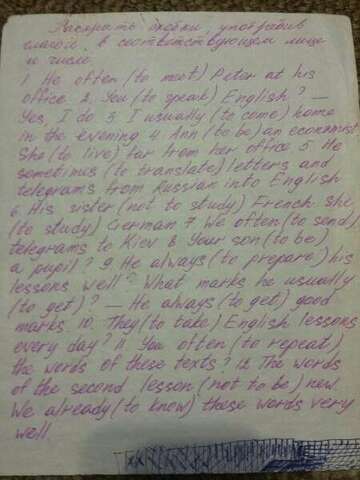 Раскрыть скобки, употребив
глагол, в соответствующем лице
и числе
1. He often (to meet) Peter at his
office. 2. You (to speak) English? —
Yes, I do 3. I usually (to come) home
in the evening 4. Ann (to be) an economist
She (to live) far from her office 5. He
sometimes (to translate) letters and
telegrams from Russian into English
6. His sister (not to study) French. She
(to study) German 7. We often (to send)
telegrams to Kiev 8. Your son (to be)
a pupil? 9. He always (to prepare) his
lessons well? What marks he usually
(to get)? — He always (to get) good
marks. 10. They (to take) English lessons
every day? 11 You often (to repeat)
the words of these texts? 12 The words
of the second lesson (not to be) new.
We already (to know) these words very
well